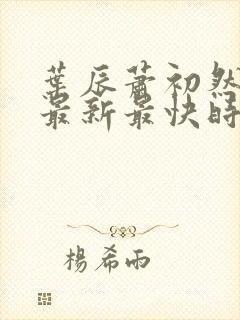 葉辰蕭初然
最新最快時
楊希雨